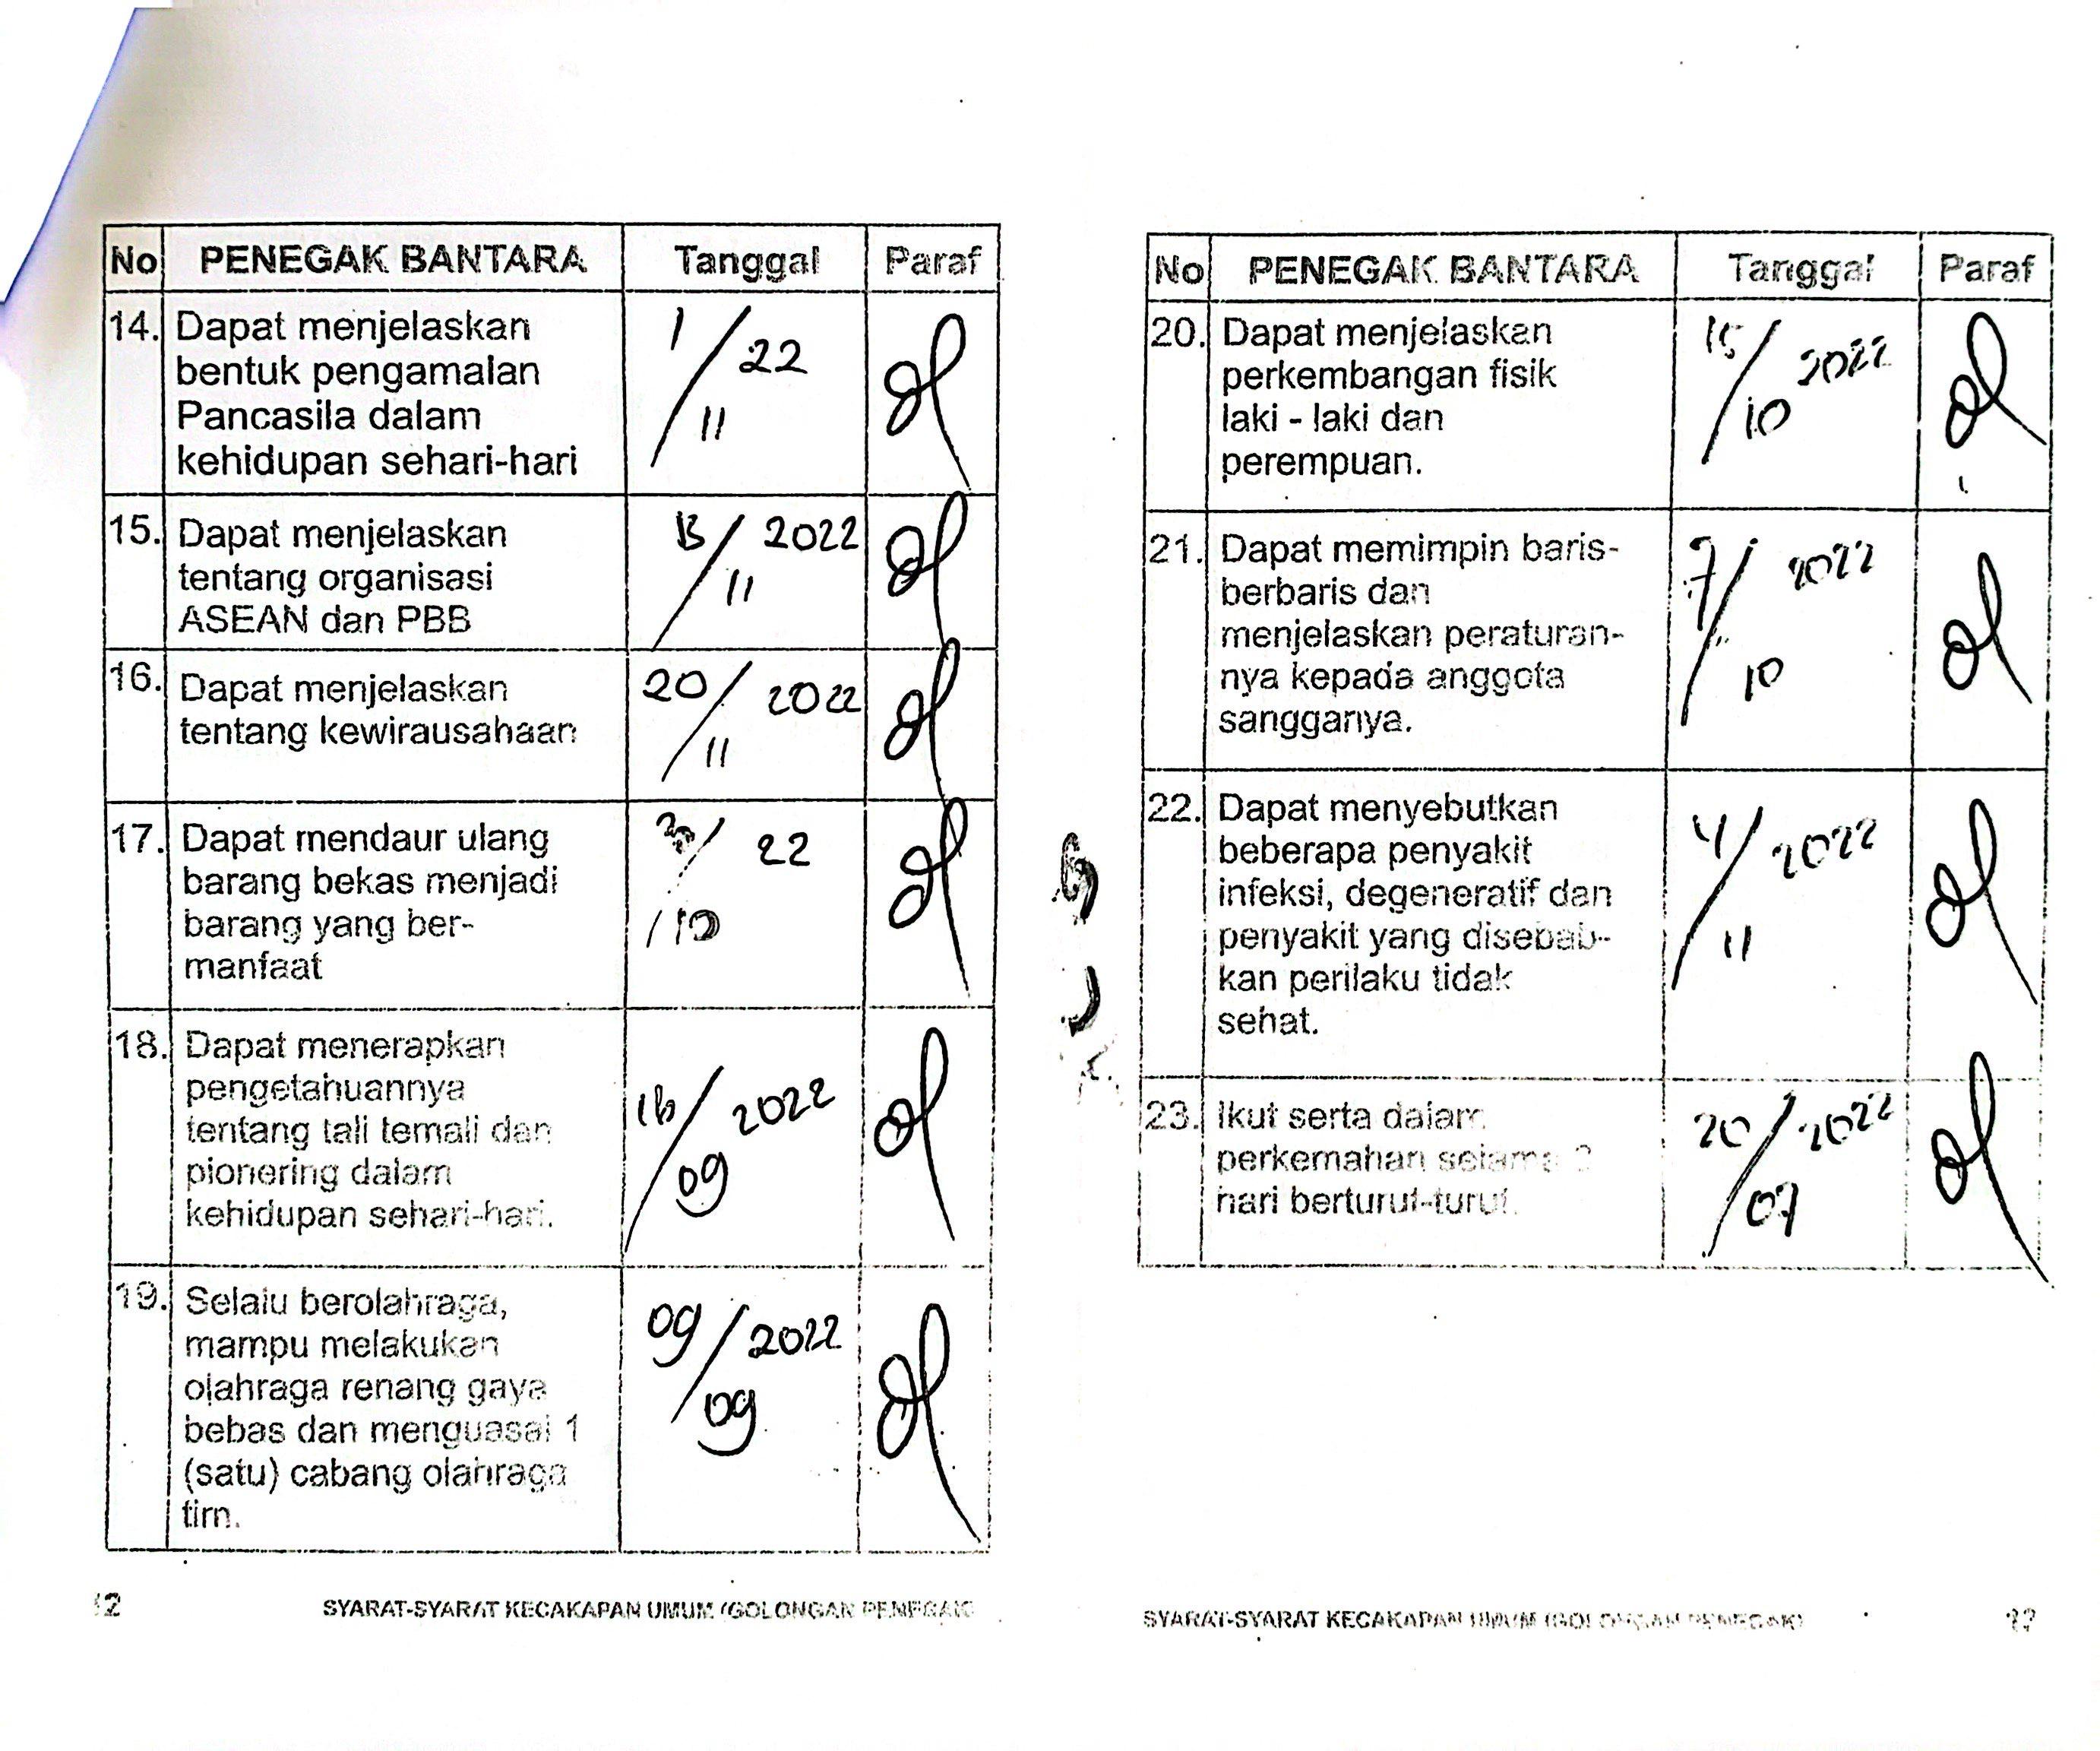 No PENEGAK BANTARA Tanggal Paraf
14. Dapat menjelaskan
bentuk pengamalan
Pancasila dalam
kehidupan sehari-hari
1/11 22
15. Dapat menjelaskan
tentang organisasi
ASEAN dan PBB
/11 2022
16. Dapat menjelaskan
tentang kewirausahaan
20/11 2022
17. Dapat mendaur ulang
barang bekas menjadi
barang yang ber-
manfaat
/10 22
18. Dapat menerapkan
pengetahuannya
tentang tali temali dan
pionering dalam
kehidupan sehari-hari.
16/09 2022
19. Selalu berolahraga,
mampu melakukan
olahraga renang gaya
bebas dan menguasai 1
(satu) cabang olahraga
tim.
09/09 2022
12 SYARAT-SYARAT KECAKAPAN UMUM (GOLONGAN PENEGAK)
No PENEGAK BANTARA Tanggal Paraf
20. Dapat menjelaskan
perkembangan fisik
laki - laki dan
perempuan.
15/10 2022
21. Dapat memimpin baris-
berbaris dan
menjelaskan peraturan-
nya kepada anggota
sangganya.
7/10 2022
22. Dapat menyebutkan
beberapa penyakit
infeksi, degeneratif dan
penyakit yang disebab-
kan perilaku tidak
sehat.
4/11 2022
23. Ikut serta dalam
perkemahan selama
hari berturut-turut.
20/07 2022
SYARAT-SYARAT KECAKAPAN UMUM (GOLONGAN PENEGAK)